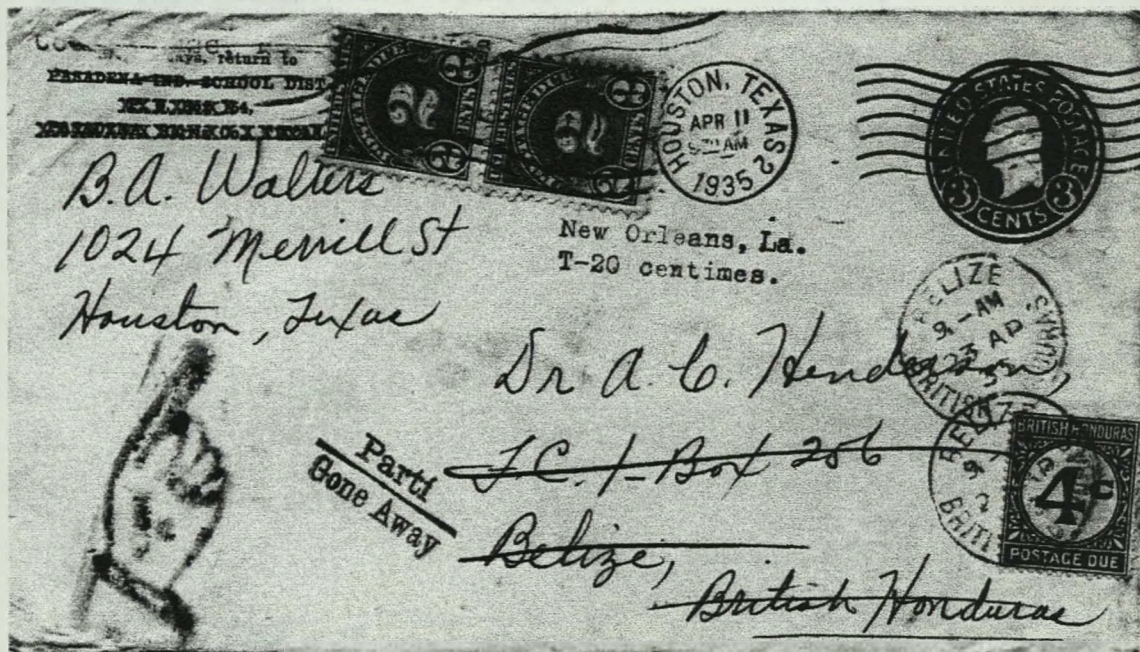 days, return to
PASADENA IND. SCHOOL DIST
B.A. Walters
1024 Merrill St
Houston, Texas
2
2
HOUSTON, TEXAS 2
APR 11
AM
1935
UNITED STATES POSTAGE
3 CENTS 3
New Orleans, La.
T-20 centimes.
BELIZE
9 - AM
23 AP
35
BRITISH HONDURAS
Dr A. C. Henderson,
Box 256
Belize,
British Honduras
Parti
Gone Away
BRITISH HONDURAS
4c
POSTAGE DUE